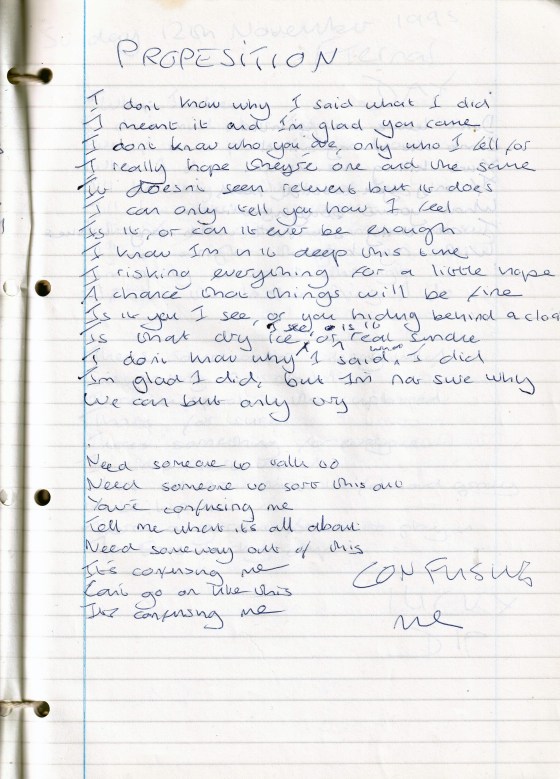 PROPESITION
I dont know why I said what I did
I meant it and I'm glad you came
I dont know who you are, only who I fell for
I really hope they're one and the same
It doesn't seem relevent but it does
I can only tell you how I feel
Is it, or can it ever be enough
I know I'm in it deep this time
I risking everything for a little hope
A chance that things will be fine
Is it you I see, or you hiding behind a
I see is it
Is that dry ice or real smoke
I dont know why I said what I did
I'm glad I did, but I'm not sure why
We can but only try
Need someone to talk to
Need someone to sort this out
You're confusing me
Tell me what its all about
Need someway out of this
It's confusing me
Can't go on like this
It's confusing me
CONFUSING
me